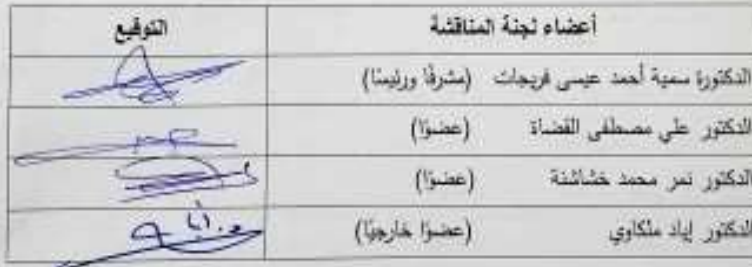 أعضاء لجنة المناقشة التوقيع
الدكتورة سمية أحمد عيسى فريجات (مشرفًا ورئيسًا)
الدكتور علي مصطفى القضاة (عضوًا)
الدكتور نمر محمد خشاشنة (عضوًا)
الدكتور إياد ملكاوي (عضوًا خارجيًا)